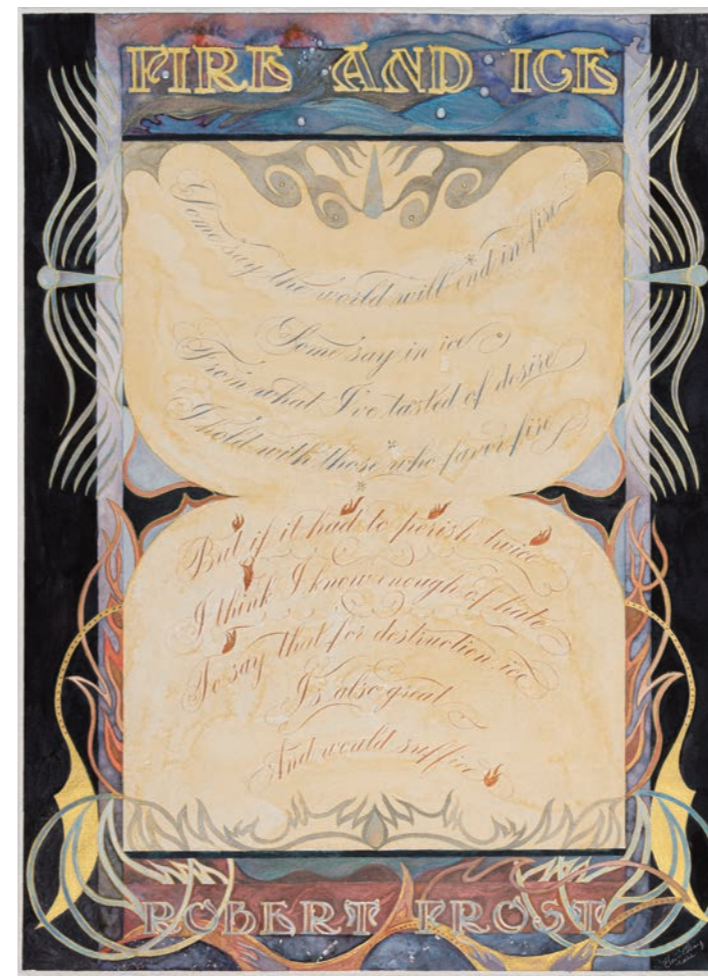 FIRE AND ICE
Some say the world will end in fire
Some say in ice
From what I've tasted of desire
I hold with those who favor fire
But if it had to perish twice
I think I know enough of hate
To say that for destruction ice
Is also great
And would suffice
ROBERT FROST